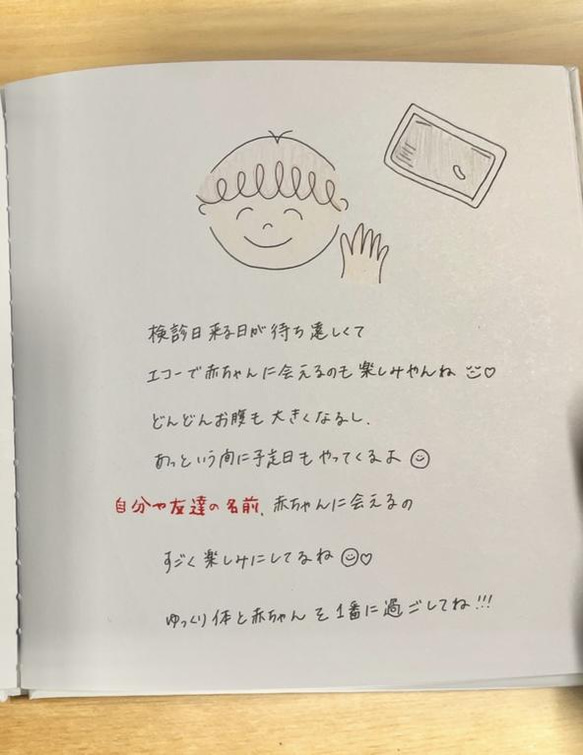 検診日来る日が待ち遠しくて
エコーで赤ちゃんに会えるのも楽しみやんね
どんどんお腹も大きくなるし、
あっという間に予定日もやってくるよ
自分や友達の名前、赤ちゃんに会えるの
すごく楽しみにしてるね
ゆっくり体と赤ちゃんを1番に過ごしてね!!!